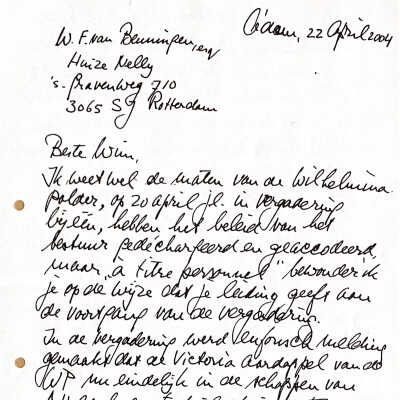 A'dam, 22 April 2004
W.F. van Beuningen, erf
Huize Nelly
's-Gravenweg 710
3065 SG Rotterdam
Beste Wim,
Ik weet wel de maten van de Wilhelmina
polder, op 20 april jl. in vergadering
bijeen, hebben het beleid van het
bestuur gedechargeerd en geaccodeerd,
maar "à titre personnel" bewonder ik
je op de wijze dat je leiding geeft aan
de voortgang van de vergadering.
In de vergadering werd enfonsch melding
gemaakt dat de Victoria aardappel van de
WP nu eindelijk in de schappen van